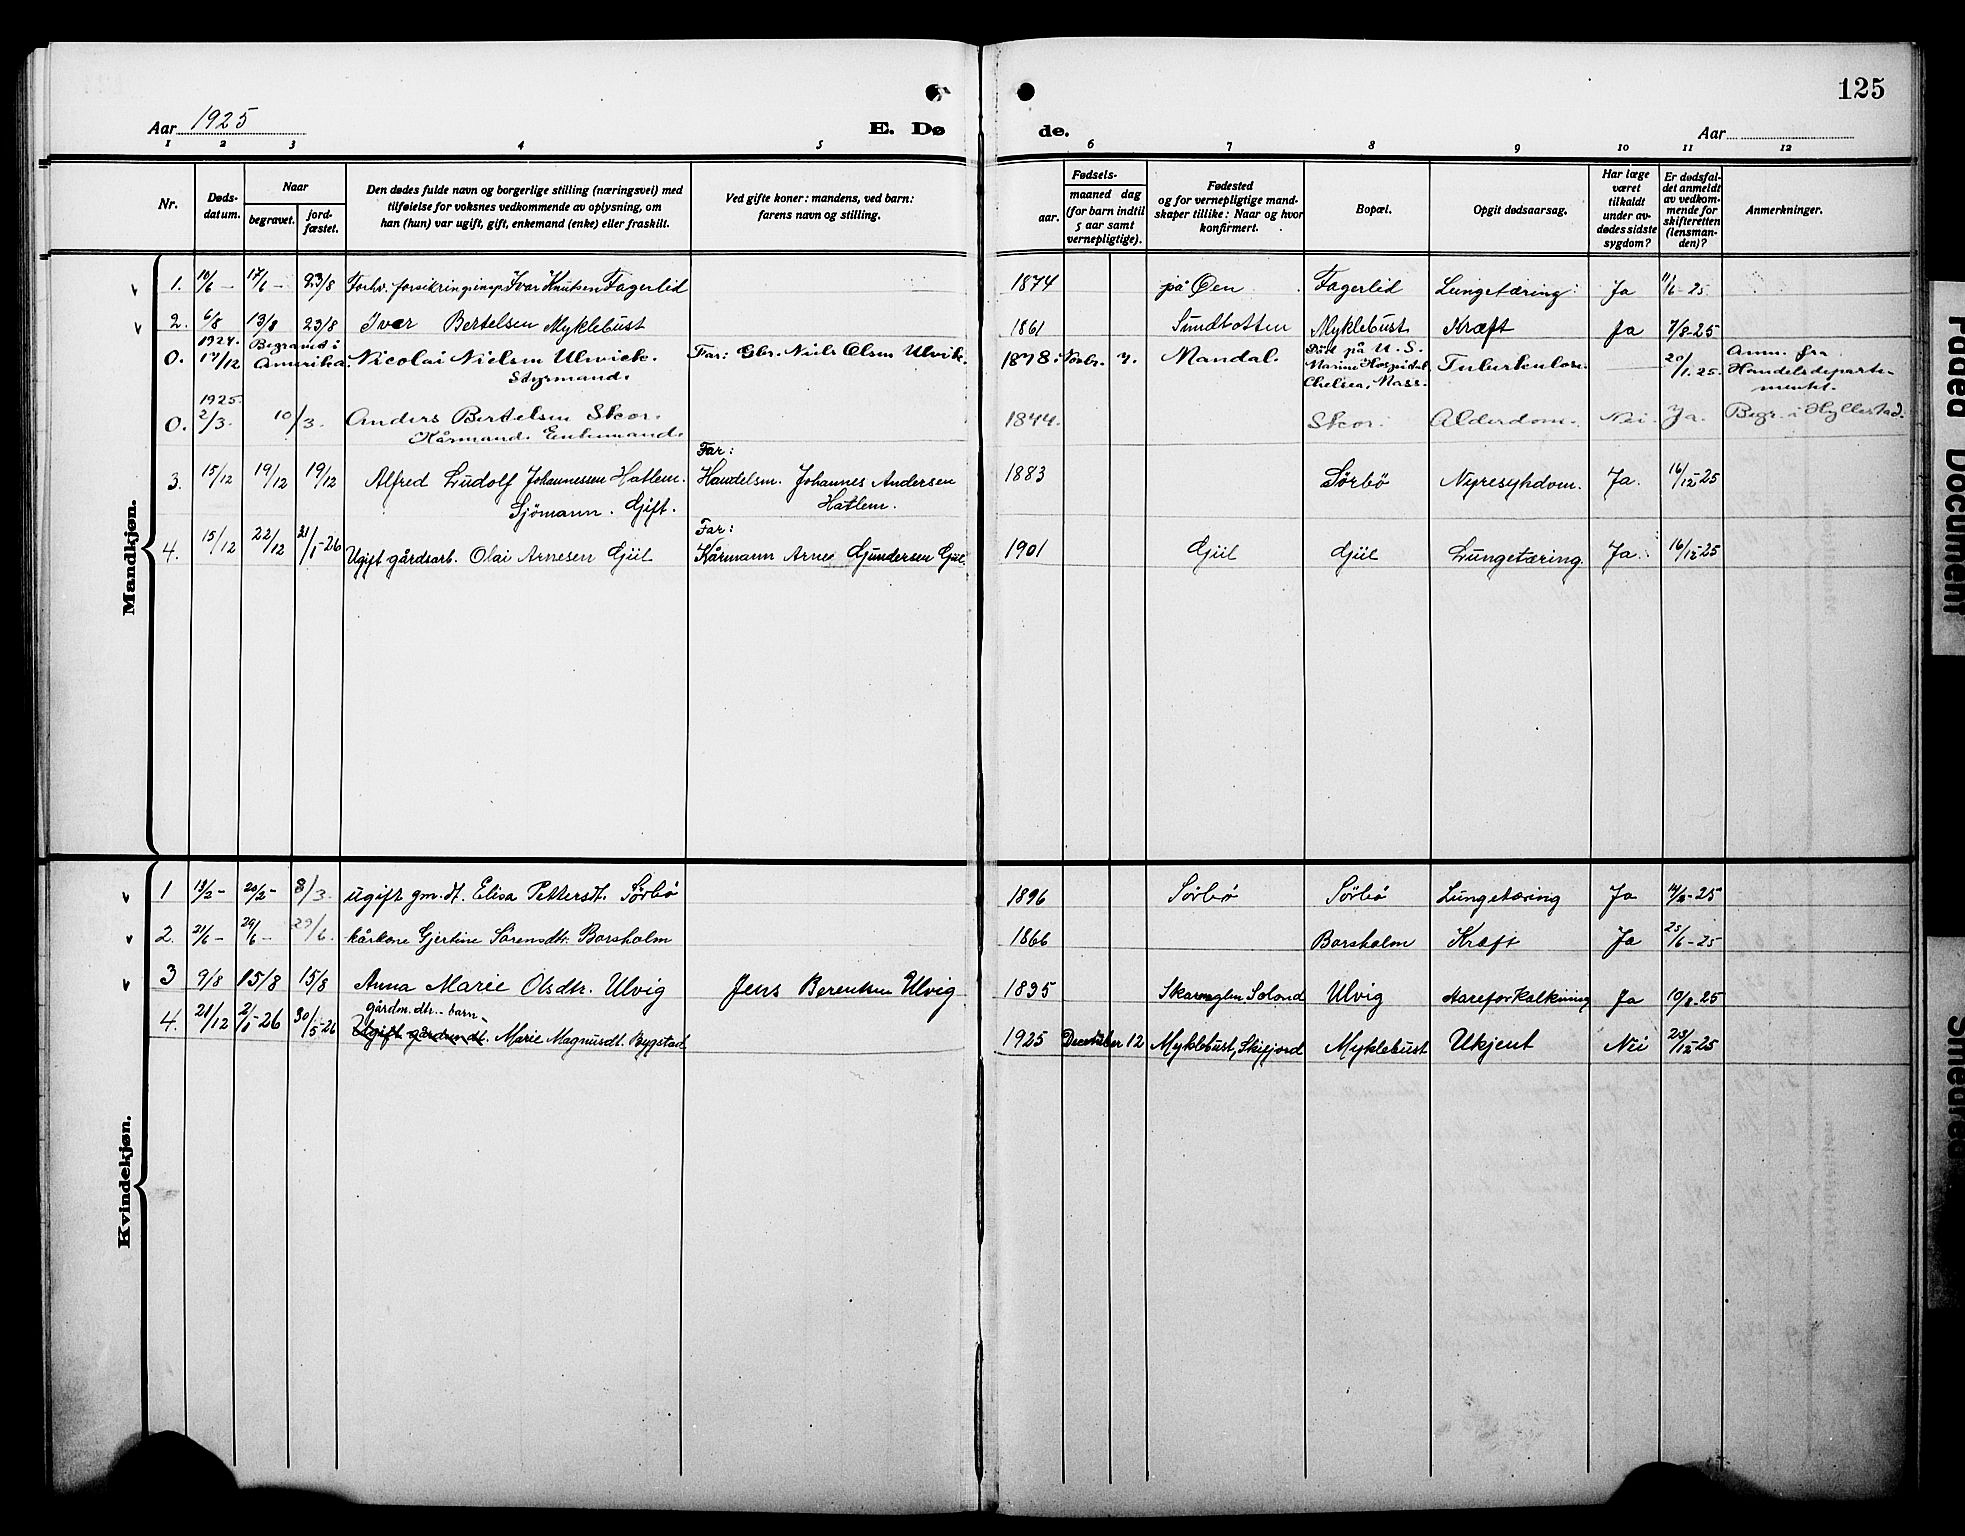 125
Aar 1925
E. Dø
de.
Aar
1 2 3 4 5 6 7 8 9 10 11 12
Nr.
Døds-
datum.
Naar
begravet.
jord-
fæstet.
Den dødes fulde navn og borgerlige stilling (næringsvei) med
tilføielse for voksnes vedkommende av oplysning, om
han (hun) var ugift, gift, enkemand (enke) eller fraskilt.
Ved gifte koner: mandens, ved barn:
farens navn og stilling.
Fødsels-
aar.
maaned dag
(for barn indtil
5 aar samt
vernepligtige).
Fødested
og for vernepligtige mand-
skaper tillike: Naar og hvor
konfirmert.
Bopæl.
Opgit dødsaarsag.
Har læge
været
tilkaldt
under av-
dødes sidste
sygdom?
Er dødsfal-
det anmeldt
av vedkom-
mende for
skifteretten
(lensman-
den)?
Anmerkninger.
Mandkjøn.
1. 10/6 - 17/6 - 23/8 Forhv. forsikringsinsp. Ivar Knutsen Fagerlid 1874 på Øen Fagerlid Lungetæring Ja 11/6-25
2. 6/8 13/8 23/8 Iver Bertelsen Myklebust 1861 Sundbotten Myklebust Kræft Ja 7/8-25
1924. Begravd i Død på U. S. Anm. fra
0. 17/12 Amerika. Nicolai Nielsen Ulvick. Far: Gbr. Niels Olsen Ulvik. 1878 Novbr. 7. Mandal. Marine Hospidal Tuberkulose. 20/1.25. Handelsdeparte-
Styrmand. Chelsea, Mass. mentet.
1925.
0. 2/3. 10/3. Anders Bertelsen Skor. 1844. Skor. Alderdom. Nei. Ja. Begr. i Hyllestad.
Kårmand. Enkemand.
Far:
3. 15/12 19/12 19/12 Alfred Ludolf Johannessen Hatlem. Handelsm. Johannes Andersen 1883 Sørbö Nyresykdom. Ja. 16/12-25
Sjömann. Gift. Hatlem.
Far:
4. 15/12 22/12 21/1-26 Ugift gårdsarb. Olai Arnesen Gjül Kårmann Arne Gundersen Gjül. 1901 Gjül Gjül Lungetæring. Ja. 16/12-25
Kvindekjøn.
1 13/2- 20/2- 8/3. ugift gm.dt. Elisa Pettersdt. Sørbø 1896 Sørbø Sørbø Lungetæring Ja 14/2-25
2. 21/6- 29/6- 29/6. kårkone Gjertine Sørensdtr. Barsholm 1866 Barsholm Kræft Ja 25/6-25
3 9/8 15/8 15/8 Anna Marie Olsdtr. Ulvig Jens Berentsen Ulvig 1895 Solund Ulvig Aareforkalkning Ja 10/8-25
gårdm. dtr. - barn -
4. 21/12 2/1-26 30/5-26 Ugift gårdmdt. Marie Magnusdt. Bygstad 1925 December 12 Myklebust, Skifjord Myklebust Ukjent Nei 23/12-25
Faded Document
Smeared